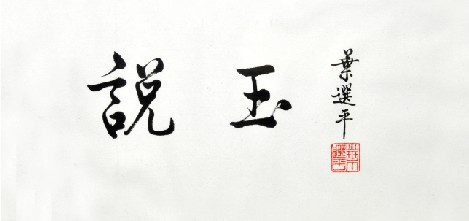 説玉
葉選平